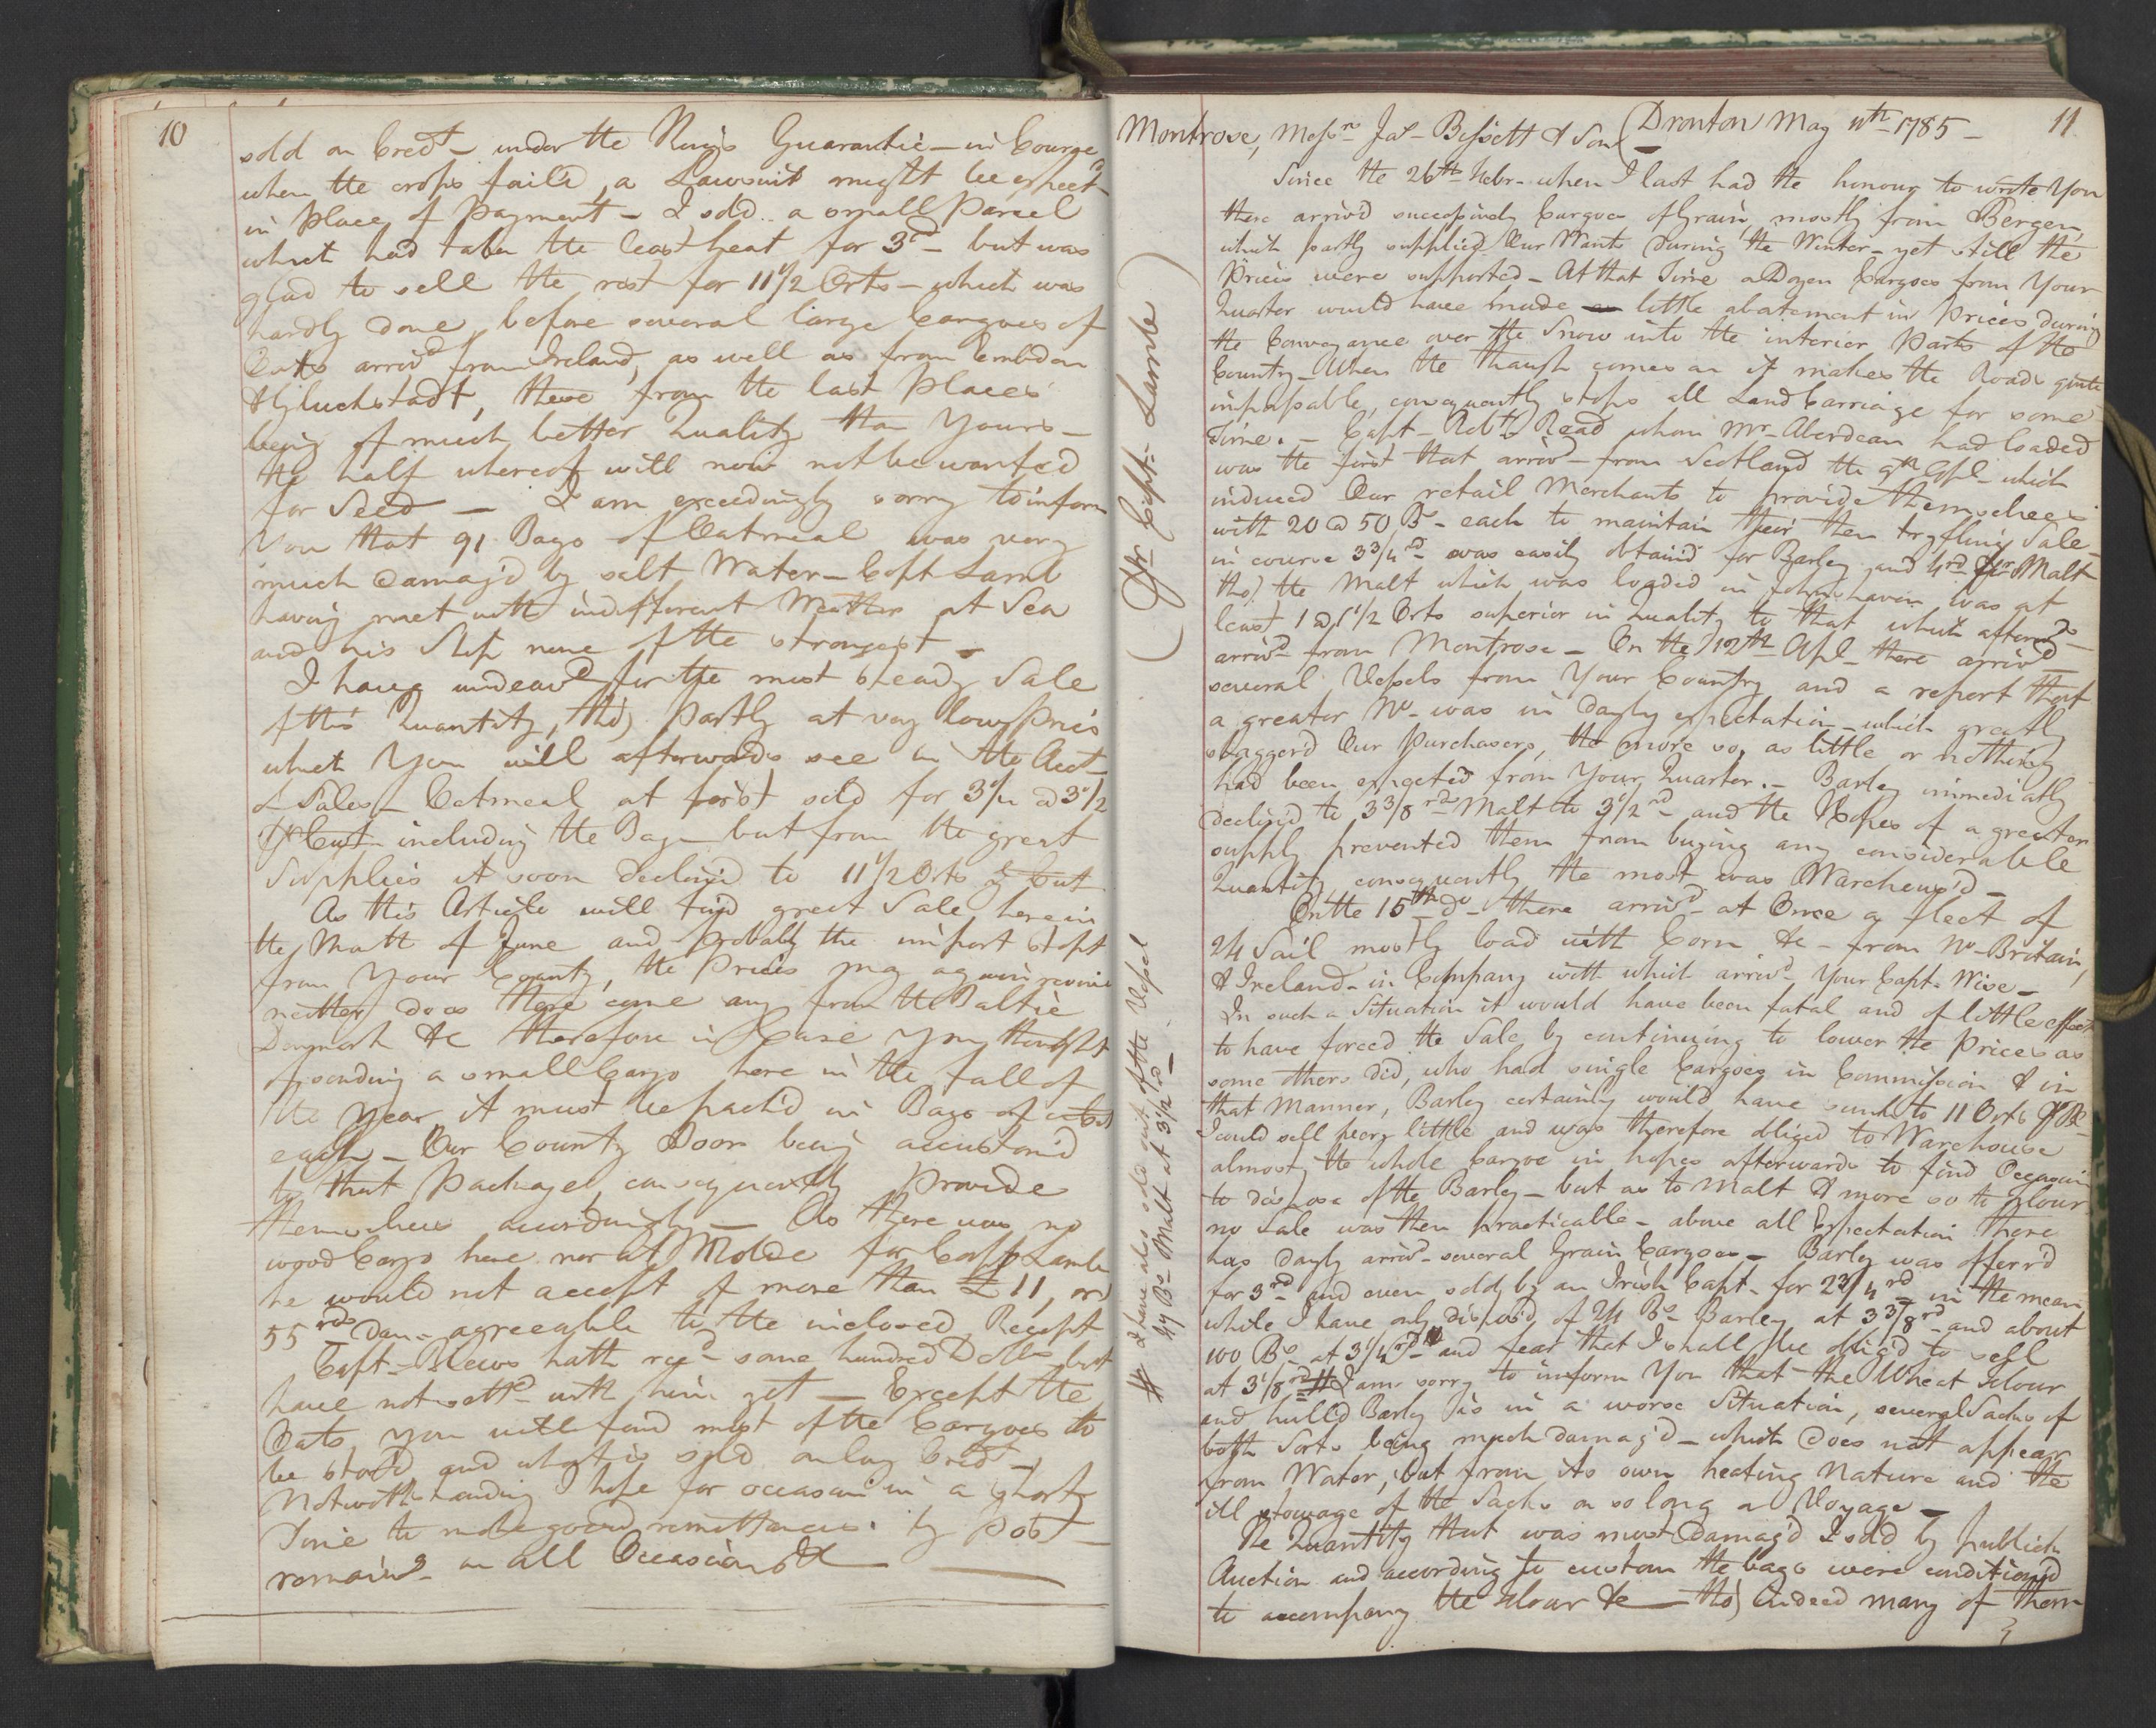 10
sold on Credt - under the King's Guarantie - in Course
when the crops fail'd, a Lawsuit might be expectd
in Place of Payment - I sold a small Parcel
which had taken the least heat for 3rd - but was
glad to sell the rest for 11 1/2 Orts - which was
hardly done, before several large Cargoes of
Oats arrivd from Ireland, as well as from Embden
& Gluckstadt, these from the last Places
being of much better Quality than Yours -
the half whereof will now not be wanted
for Seed - I am exceedingly sorry to inform
You that 91 Bags of Oatmeal was very
much damag'd by salt Water - Capt Lamb
having met with indifferent Weather at Sea
and his Ship none of the strongest -
I have endeavd for the most steady Sale
of this Quantity, tho' partly at very low Prices
which You will afterwards see in the Acct
of Sales - Oatmeal at first sold for 3 1/4 @ 3 1/2
pr Cwt including the Bags but from the great
Supplies it soon declin'd to 11 1/2 Orts pr Cwt
As this Article will find great Sale here in
the Month of June and probably the import stopt
from Your County, the Prices may again revive
neither does there come any from the Baltic
Denmark &c therefore in Case You thought
of sending a small Cargo here in the fall of
the Year, it must be pack'd in Bags of
each - Our County Boors being accustom'd
to that Package, consequently Provide
themselves accordingly - As there was no
wood Cargo here nor at Molde for Capt Lamb
he would not accept of more than £ 11, or
55 rds Dan - agreeable to the inclosed Receipt
Capt - Blews hath recd some hundred Dollrs but
have not settd with him yet - Except the
Oats, You will find most of the Cargoes to
be stor'd, and what is sold on long Credt -
Notwithstanding I hope for occasion in a short
Time to make good remittances by Post
remaing on all Occasions &c
Montrose, Messrs Jas - Bissett & Son (Dronton May 11th 1785 - 11
(Pr Capt - Lamb)
Since the 26th Febr - when I last had the honour to wrote You
there arriv'd successively Cargoes of Grain, mostly from Bergen,
which partly supplied Our Wants during the Winter - yet still the
Prices were supported - At that Time a Dozen Cargoes from Your
Quarter would have made little abatement in Prices during
the Conveyance over the Snow into the interior Parts of the
Country - When the Thaugh comes on it makes the Roads quite
impassable, consequently stops all Land Carriage for some
Time. - Capt - Robt Read whom Mr - Aberdean had loaded
was the first that arrivd - from Scotland the 9th Apl - which
induced Our retail Merchants to provide themselves
with 20 @ 50 Bs - each to maintain their then tryfling Sale -
in course 3 3/4 rd - was easily obtaind for Barley and 4rd for Malt
tho' the Malt which was loaded in Johnshaven was at
least 1 @ 1 1/2 Orts superior in Quality to that which afterwds
arrivd from Montrose - On the 10th Apl - there arrivd
several Vessels from Your Country and a report that
a greater No - was in dayly expectation - which greatly
staggerd Our Purchasers, the more so, as little or nothing
had been expected from Your Quarter. - Barley immediatly
declind to 3 3/8 rd Malt to 3 1/2 rd - and the Hopes of a greater
supply prevented them from buying any considerable
Quantity consequently the most was Warehous'd -
On the 15th do - there arrivd - at Once a fleet of
24 Sail mostly load with Corn &c - from No - Britain,
& Ireland - in Company with which arrivd - Your Capt. Wise -
In such a Situation it would have been fatal and of little effect
to have forced the Sale by continuing to lower the Prices as
some others did, who had single Cargoes in Commission & in
that Manner, Barley certainly would have sunk to 11 Orts pr B -
I could sell very little and was therefore obliged to Warehouse
almost the whole Cargoe in hopes afterwards to find Occasion
to dispose of the Barley - but as to Malt & more so the flour
no Sale was then practicable - above all Expectation there
has dayly arrivd - several Grain Cargoes - Barley was offerr'd
for 3rd - and even sold by an Irish Capt - for 2 3/4 rd - in the mean
while I have only dispos'd of 24 Bs - Barley at 3 3/8 rd - and about
100 Bs - at 3 1/4 rd and fear that I shall be oblig'd to sell
at 3 1/8 rd # I am sorry to inform You that the Wheat Flour
and hulld Barly is in a worse Situation, several Sacks of
both Sorts being much damag'd - which does not appear
from Water, but from its own heating Nature and the
ill stowage of the Sacks on so long a Voyage -
The Quantity that was most Damag'd I sold by publick
Auction and according to custom the bags were condition'd
to accompany the Flour &c - tho' indeed many of them
# I have also sold out of the Vessel
49 Bs - Malt at 3 1/2 rd -